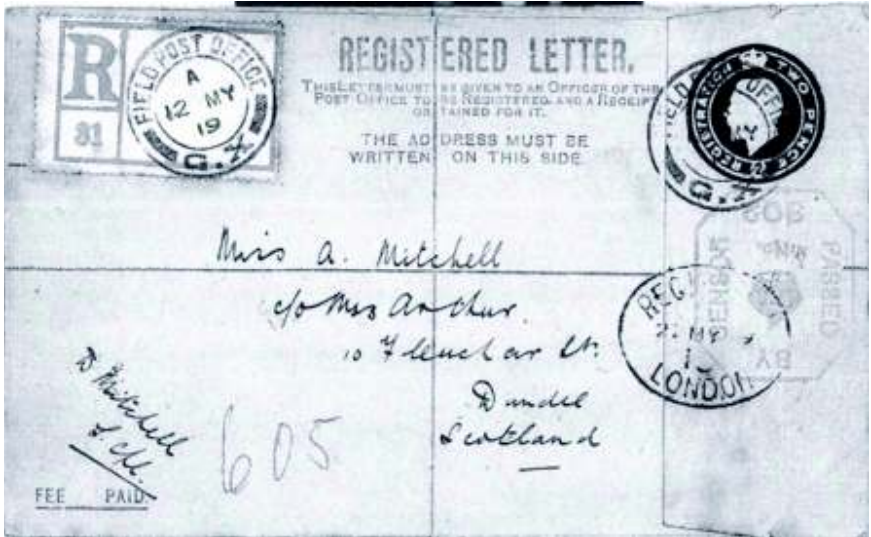 R
31
FIELD POST OFFICE
A
12 MY
19
G.X
REGISTERED LETTER.
THIS LETTER MUST BE GIVEN TO AN OFFICER OF THE
POST OFFICE TO BE REGISTERED AND A RECEIPT
OBTAINED FOR IT.
THE ADDRESS MUST BE
WRITTEN ON THIS SIDE
REGISTRATION TWO PENCE
OFFI
MY
G.X
PASSED
BY
CENSOR
Miss A. Mitchell
c/o Mrs Arthur.
10 Fleuchar St.
Dundee
Scotland
22 MY
LONDON
D Mitchell
605
FEE PAID.